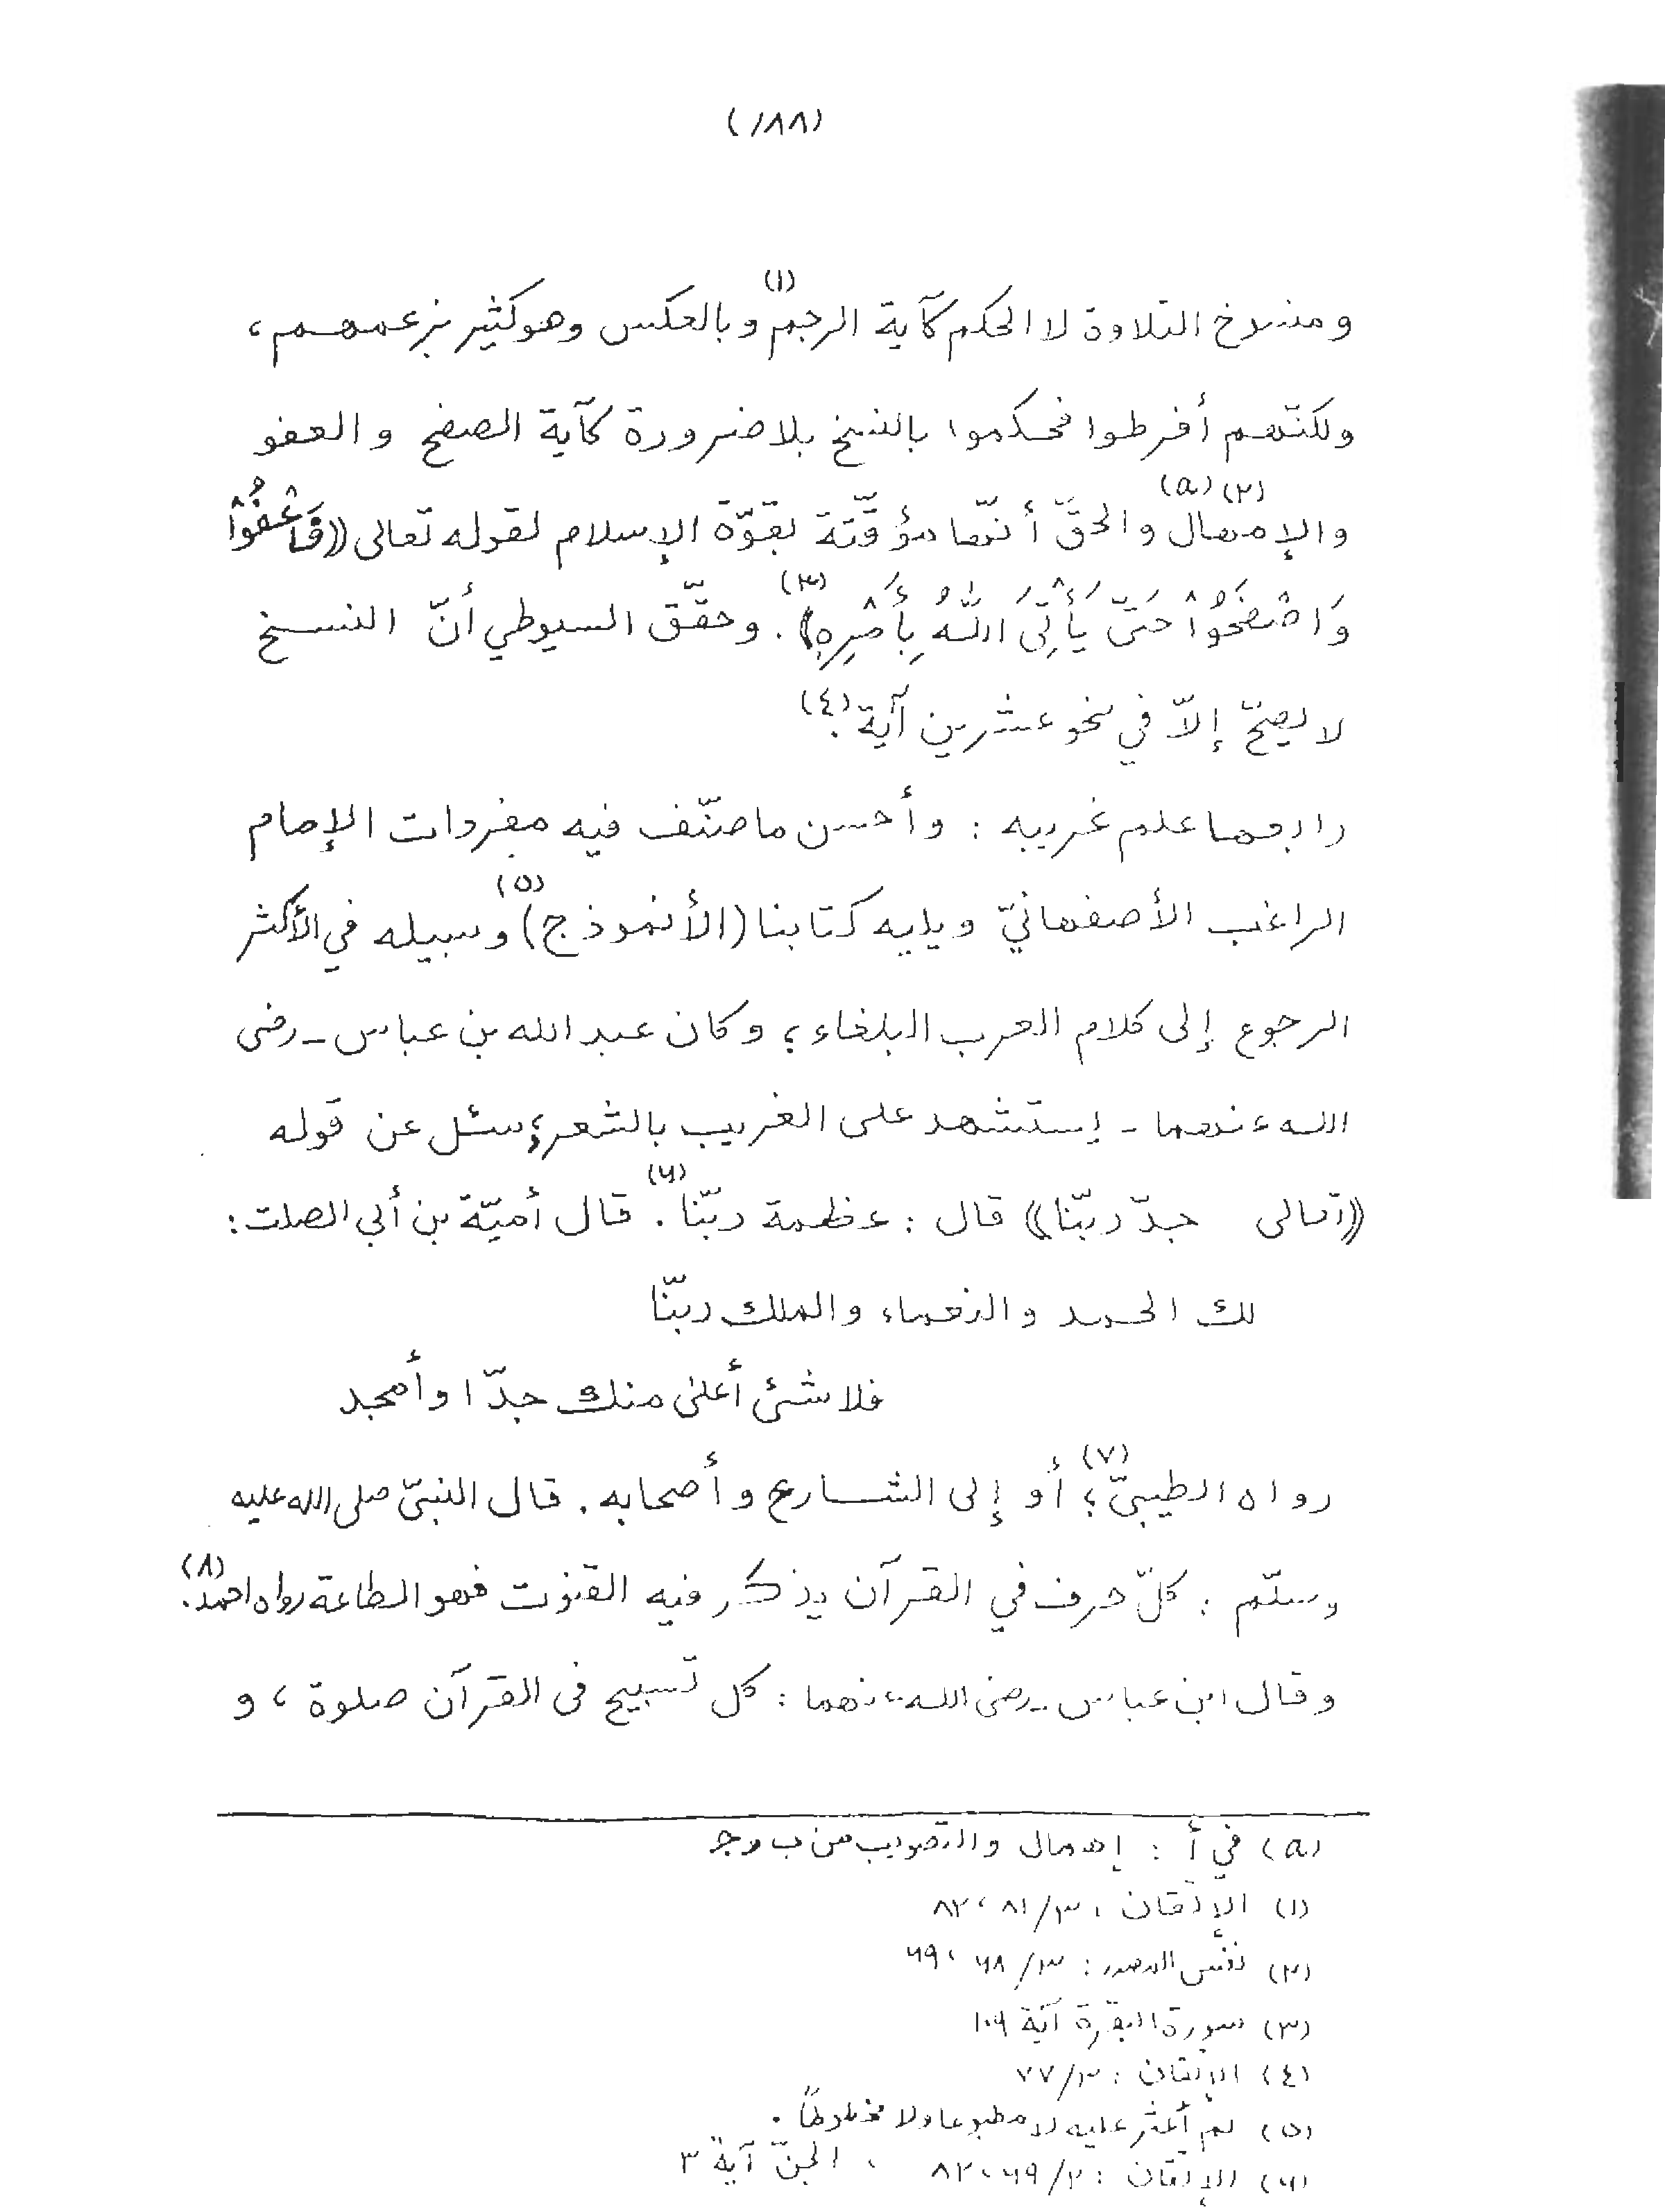 (١٨٨)
ومنسوخ التلاوة لا الحكم كآية الرجم(١) وبالعكس وهو كثير بزعمهم،
ولكنّهم أفرطوا فحكموا بالنسخ بلا ضرورة كآية الصفح والعفو
والإمهال(a)(٢) والحقّ أنّها مؤقّتة بقوّة الإسلام لقوله تعالى ((فَاعْفُوْا
وَاصْفَحُوْا حَتّىٰ يَأْتِىَ اللّٰهُ بِأَمْرِهٖ))(٣). وحقّق السيوطي أنّ النسخ
لا يصحّ إلاّ في نحو عشرين آية(٤).
رابعها علم غريبه : وأحسن ما صنّف فيه مفردات الإمام
الراغب الأصفهانيّ ويليه كتابنا (الأنموذج)(٥) وسبيله في الأكثر
الرجوع إلى كلام العرب البلغاء؛ وكان عبد الله بن عباس ـ رضى
الله عنهما ـ يستشهد على الغريب بالشعر؛ سئل عن قوله
((تعالى جدّ ربّنا)) قال : عظمة ربّنا(٦). قال أميّة بن أبي الصلت :
لك الحمد والنعماء والملك ربّنا
فلا شئ أعلى منك جدّا وأمجد
رواه الطيبيّ(٧)؛ أو إلى الشارع وأصحابه. قال النبيّ صلى الله عليه
وسلّم : كلّ حرف في القرآن يذكر فيه القنوت فهو الطاعة رواه احمد(٨).
وقال ابن عباس ـ رضى الله عنهما : كل تسبيح فى القرآن صلوة ، و
(a) في أ : إهمال والتصويب من ب وجـ
(١) الإتقان : ٣/ ٨١، ٨٢
(٢) نفس المصدر : ٣/ ٦٨، ٦٩
(٣) سورة البقرة آية ١٠٩
(٤) الإتقان : ٣/ ٧٧
(٥) لم أعثر عليه لا مطبوعا ولا مخطوطاً .
(٦) الإتقان : ٢/ ٦٩، ٨٢ ، الجنّ آية ٣